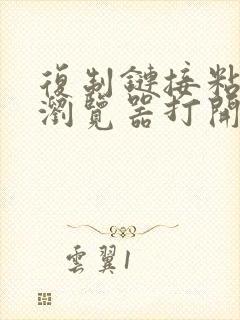 復制鏈接粘
瀏覽器打開
雲翼1